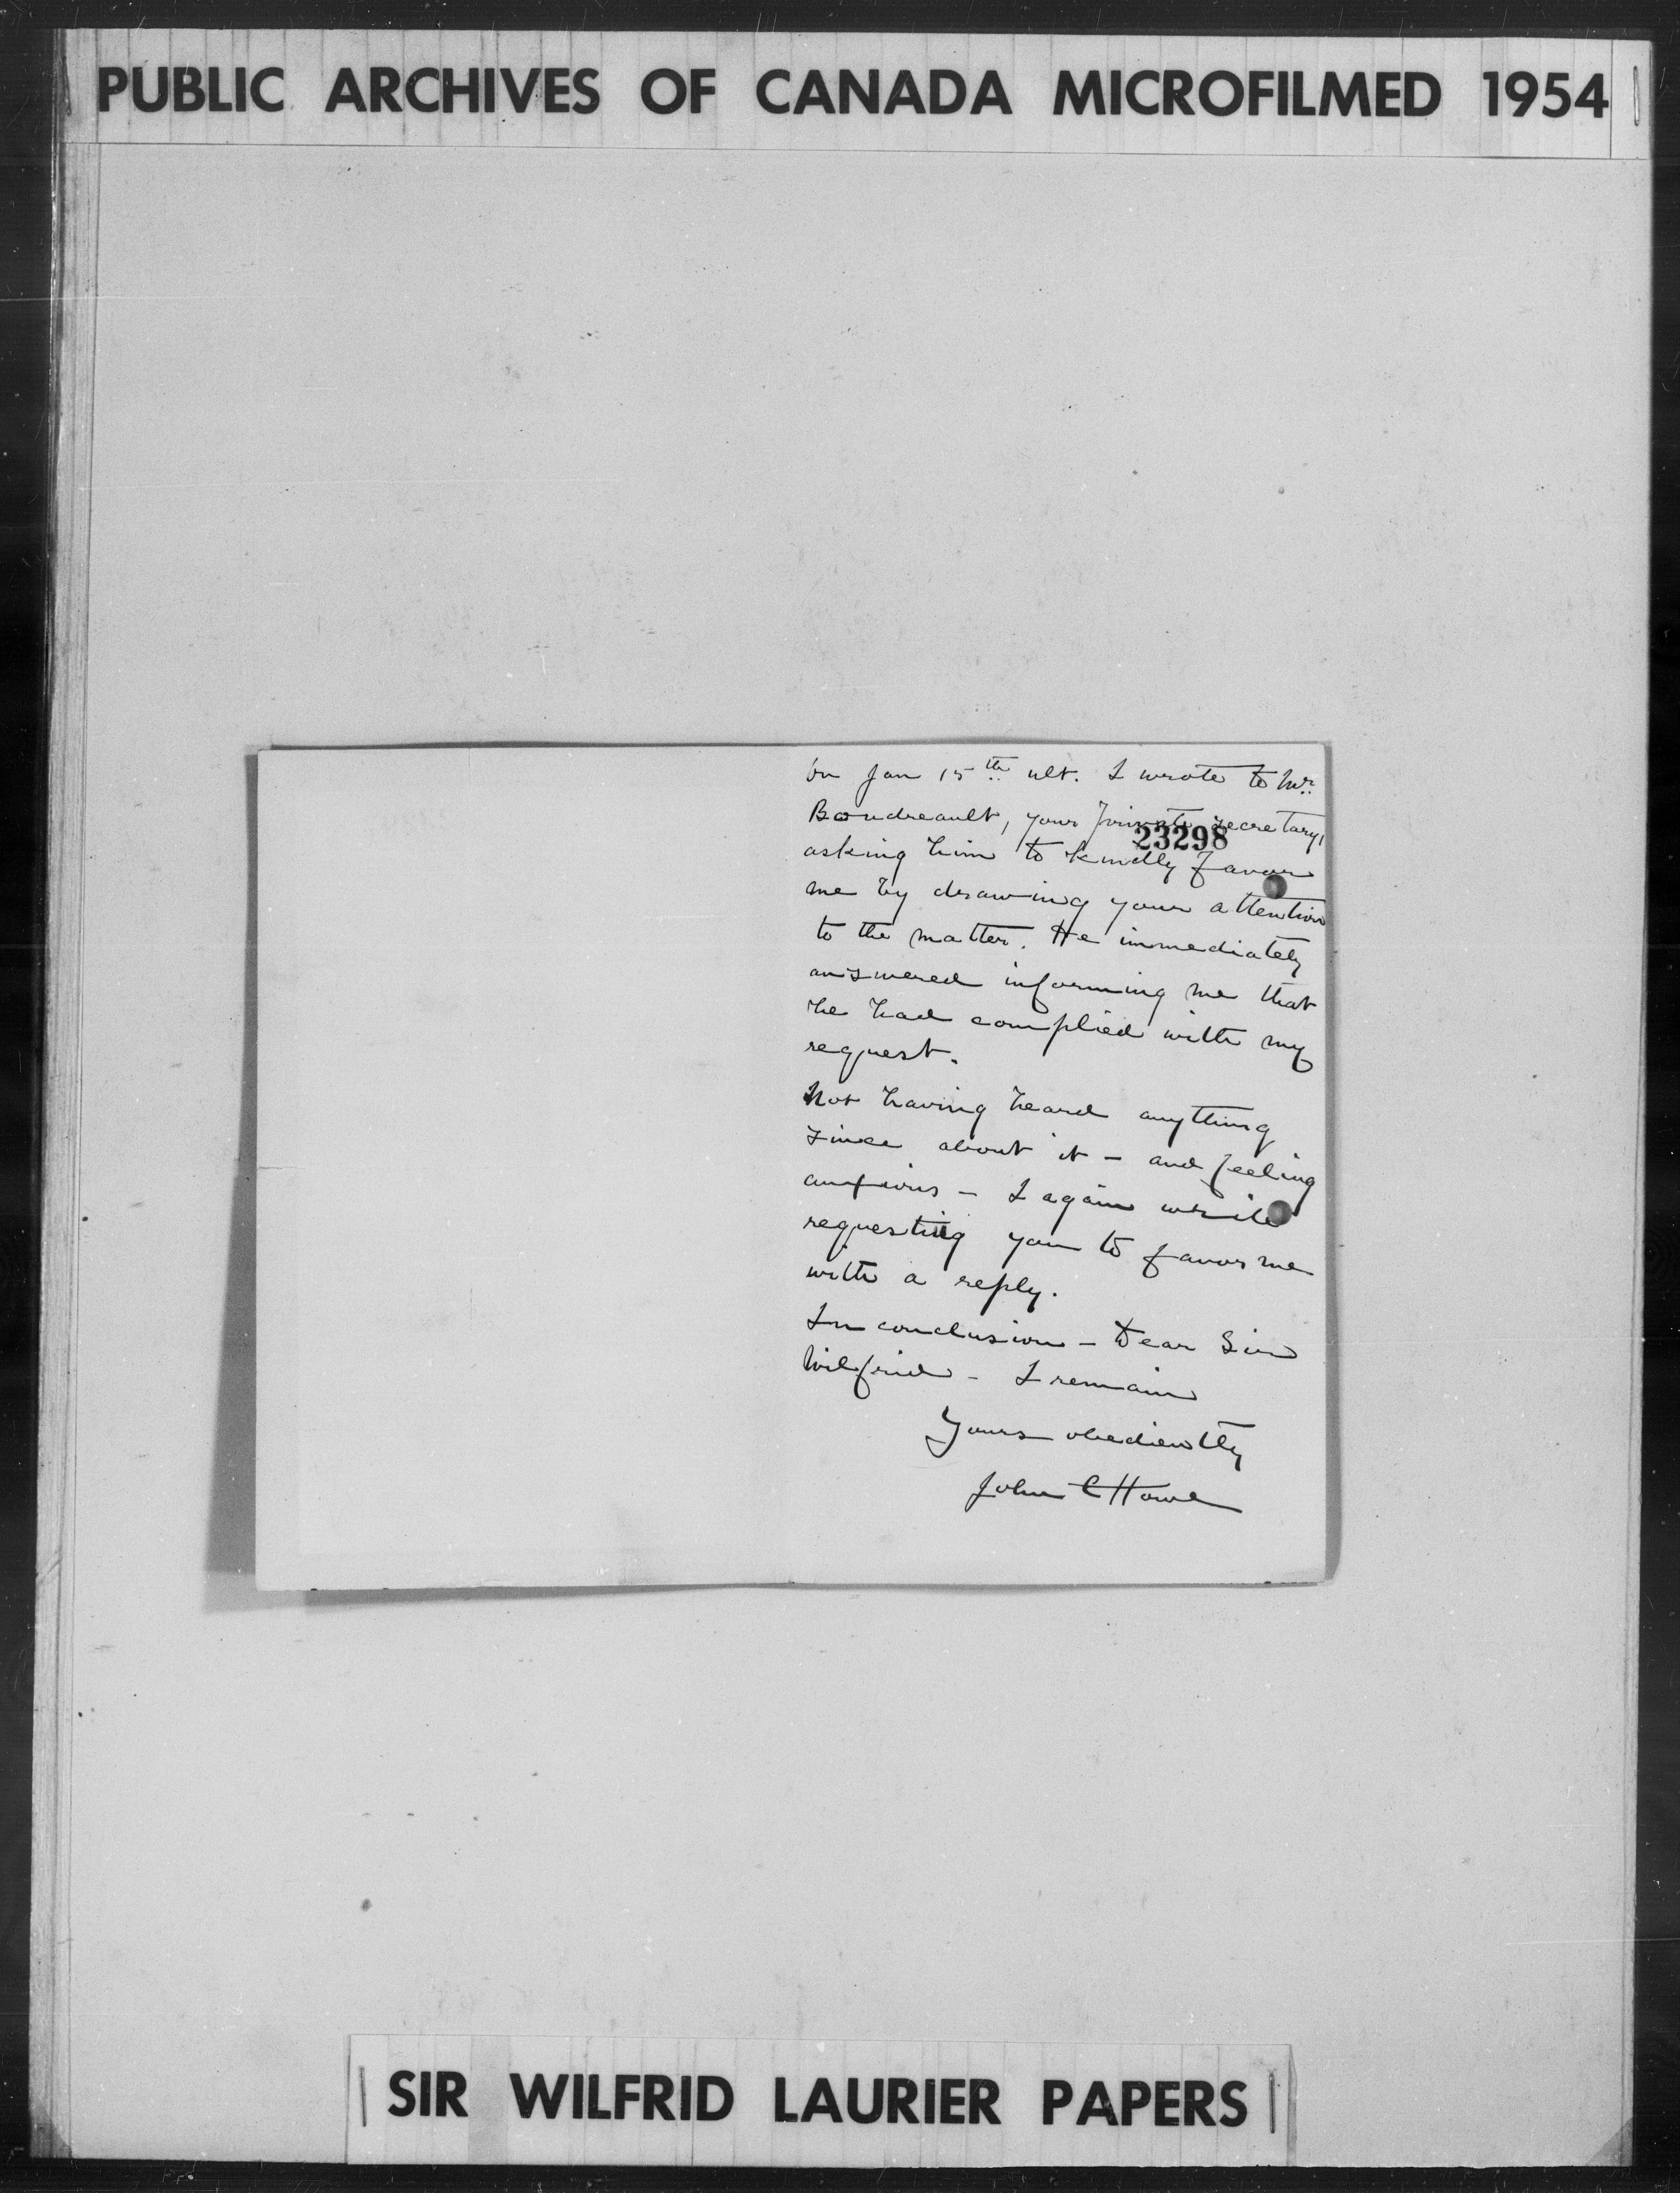 PUBLIC ARCHIVES OF CANADA MICROFILMED 1954
on Jan 15th ult. I wrote to Mr.
Boudreault, your private secretary,
23298
asking him to kindly favor
me by drawing your attention
to the matter. He immediately
answered informing me that
he had complied with my
request.
Not having heard anything
since about it - and feeling
anxious - I again write
requesting you to favor me
with a reply.
In conclusion - Dear Sir
Wilfrid - I remain
Yours obediently
John C Howe
SIR WILFRID LAURIER PAPERS